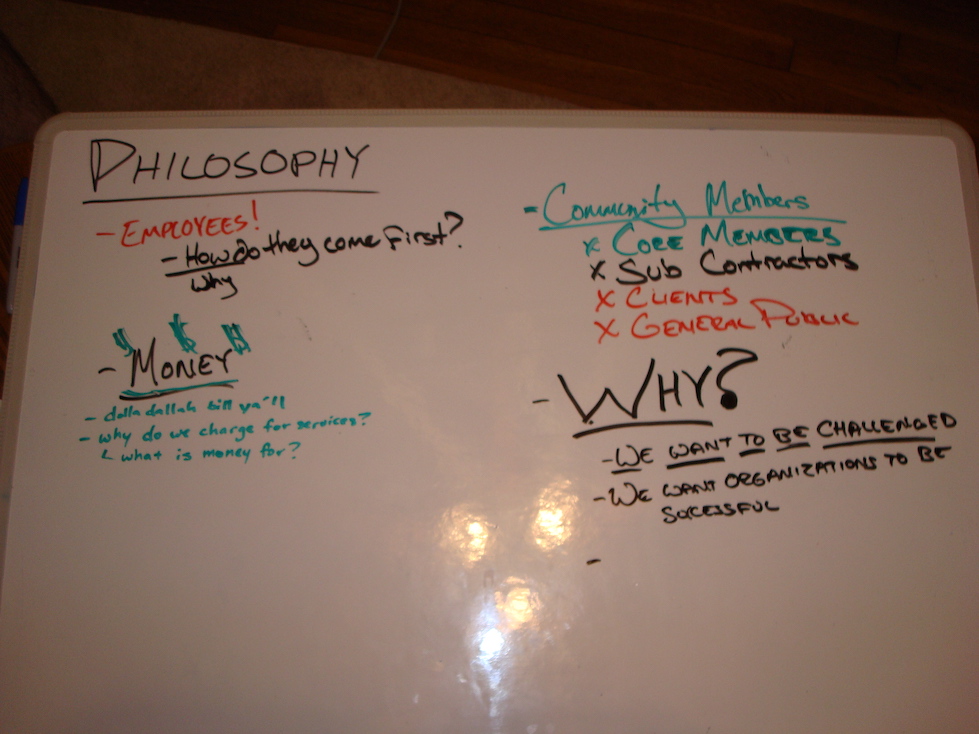 PHILOSOPHY
- EMPLOYEES!
- How do they come First?
Why
$ $ $
- MONEY
- dolla dallah bill ya'll
- why do we charge for services?
└ what is money for?
- Community Members
x CORE MEMBERS
x Sub Contractors
x CLIENTS
x GENERAL PUBLIC
- WHY?
- WE WANT TO BE CHALLENGED
- WE WANT ORGANIZATIONS TO BE
SUCESSFUL
-